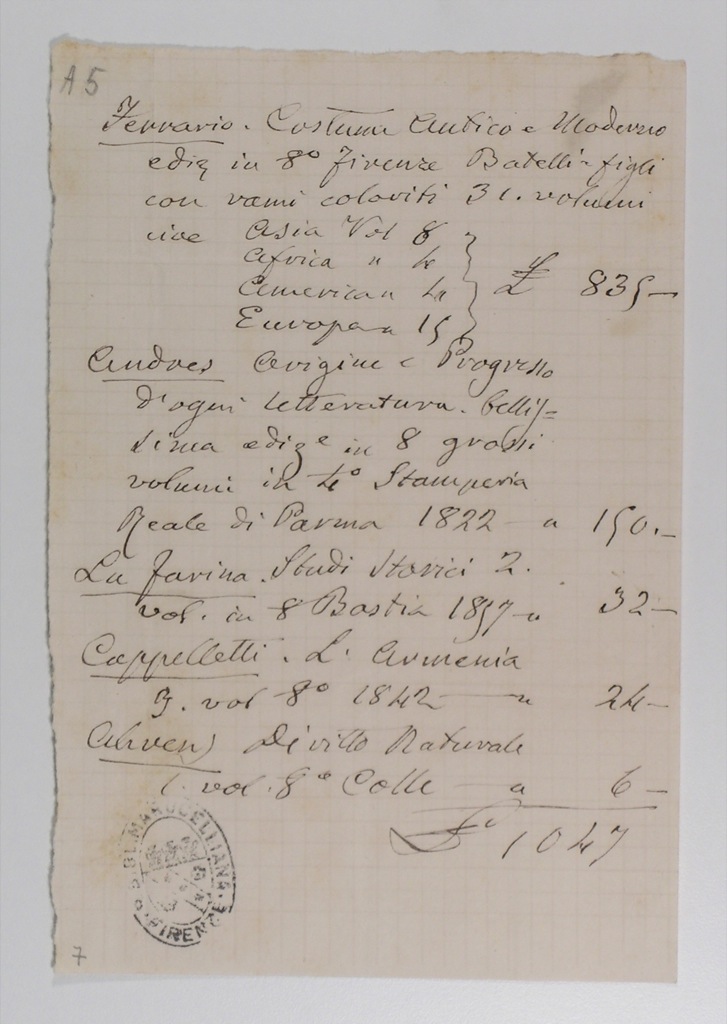 A 5
Ferrario. Costume Antico e Moderno
ediz in 8º Firenze Batelli e figli
con rami coloriti 31. volumi
cioe Asia Vol 8
Africa " 4
America " 4
Europa " 15
£ 835 —
Andres Origine e Progresso
d'ogni letteratura. bellis=
sima edize in 8 grossi
volumi in 4º Stamperia
Reale di Parma 1822 — " 150. —
La Farina. Studi Storici 2.
vol. in 8 Bastia 1857 — " 32 —
Cappelletti. L' Armenia
3. vol 8º 1842 — " 24 —
Ahrens Diritto Naturale
1. vol. 8º Colle — " 6 —
£ 1047
BIBL. MARUCELLIANA
FIRENZE
7